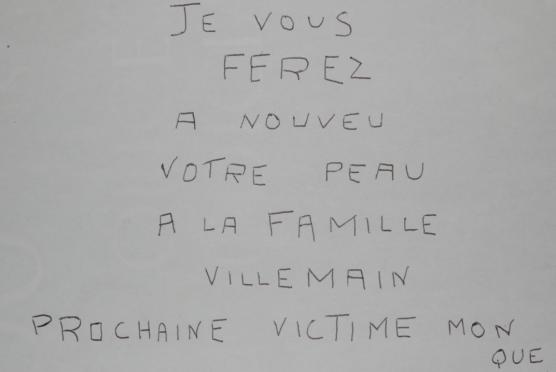 JE VOUS
FEREZ
A NOUVEU
VOTRE PEAU
A LA FAMILLE
VILLEMAIN
PROCHAINE VICTIME MON
QUE